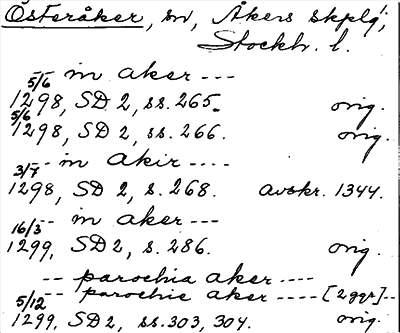 Österåker, sn, Åkers skplg;
Stockh. l.
-- in aker ---
5/6 1298, SD 2, ss. 265. orig.
5/6 1298, SD 2, ss. 266. orig.
-- in akir ----
3/7 1298, SD 2, s. 268. avskr. 1344.
-- in aker ---
16/3 1299, SD 2, s. 286. orig.
-- parochia aker ----
-- parochie aker ---- [2 ggr]--
5/12 1299, SD 2, ss. 303, 304. orig.